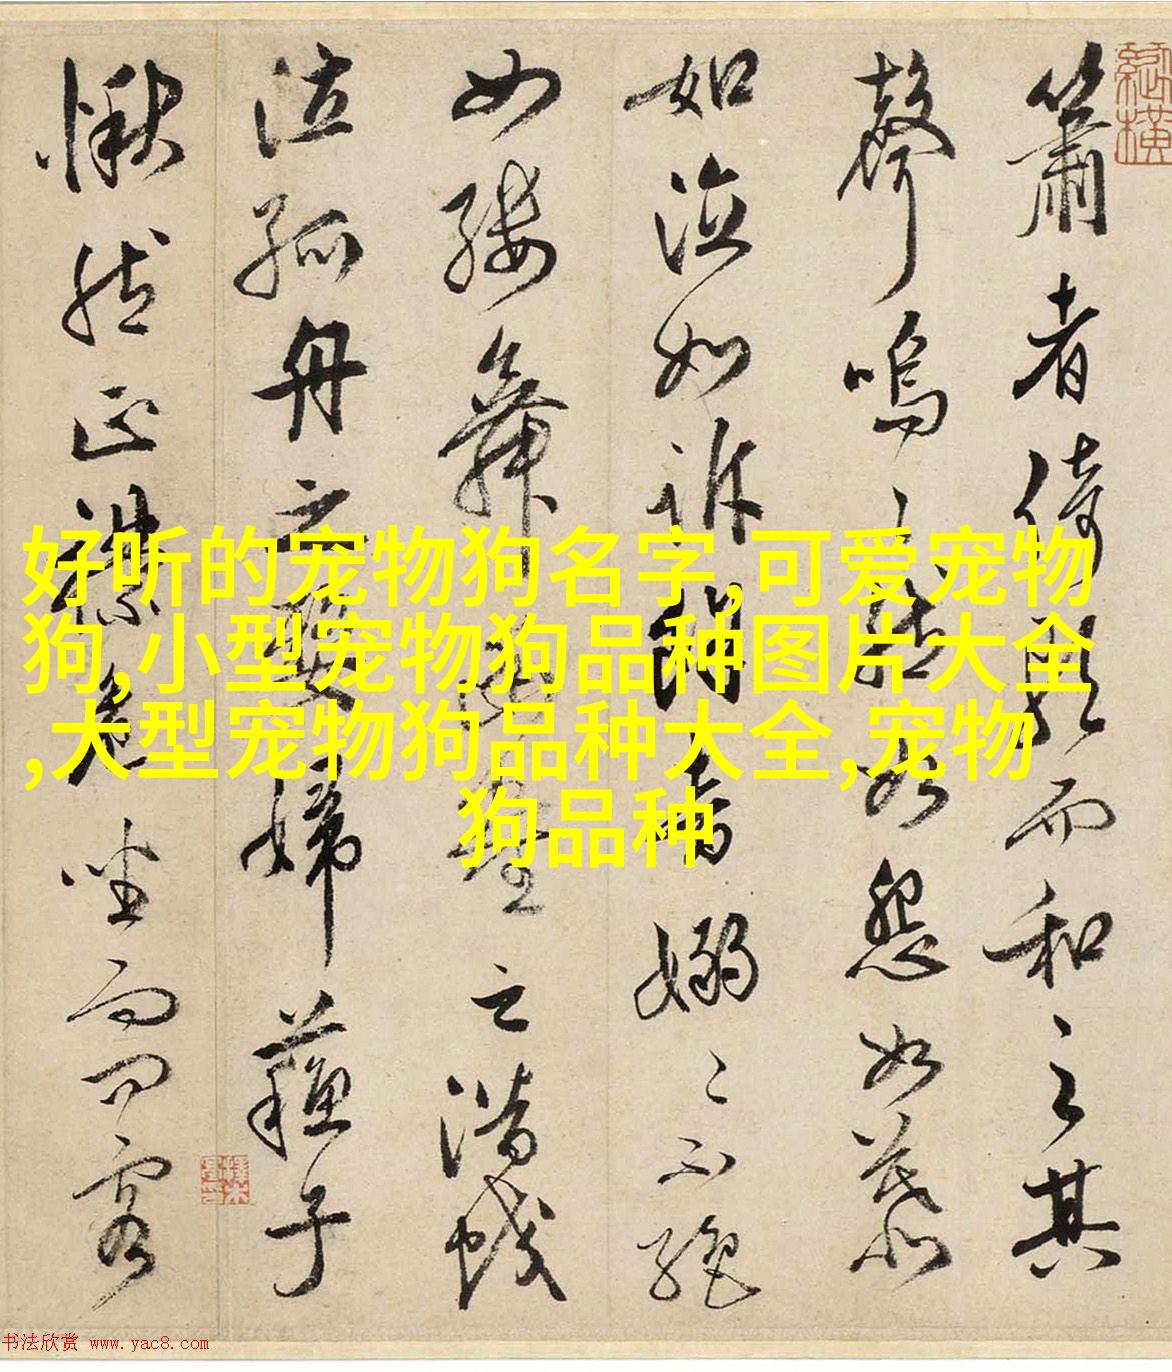 簫者倚歌而和之其
聲嗚〻然如怨如慕
如泣如訴餘音嫋〻不絕
如縷舞幽壑之潛蛟
泣孤舟之嫠婦蘇子
愀然正襟危坐而問客
好听的宠物狗名字,可爱宠物
狗,小型宠物狗品种图片大全
,大型宠物狗品种大全,宠物
狗品种
书法欣赏 www.yac8.com